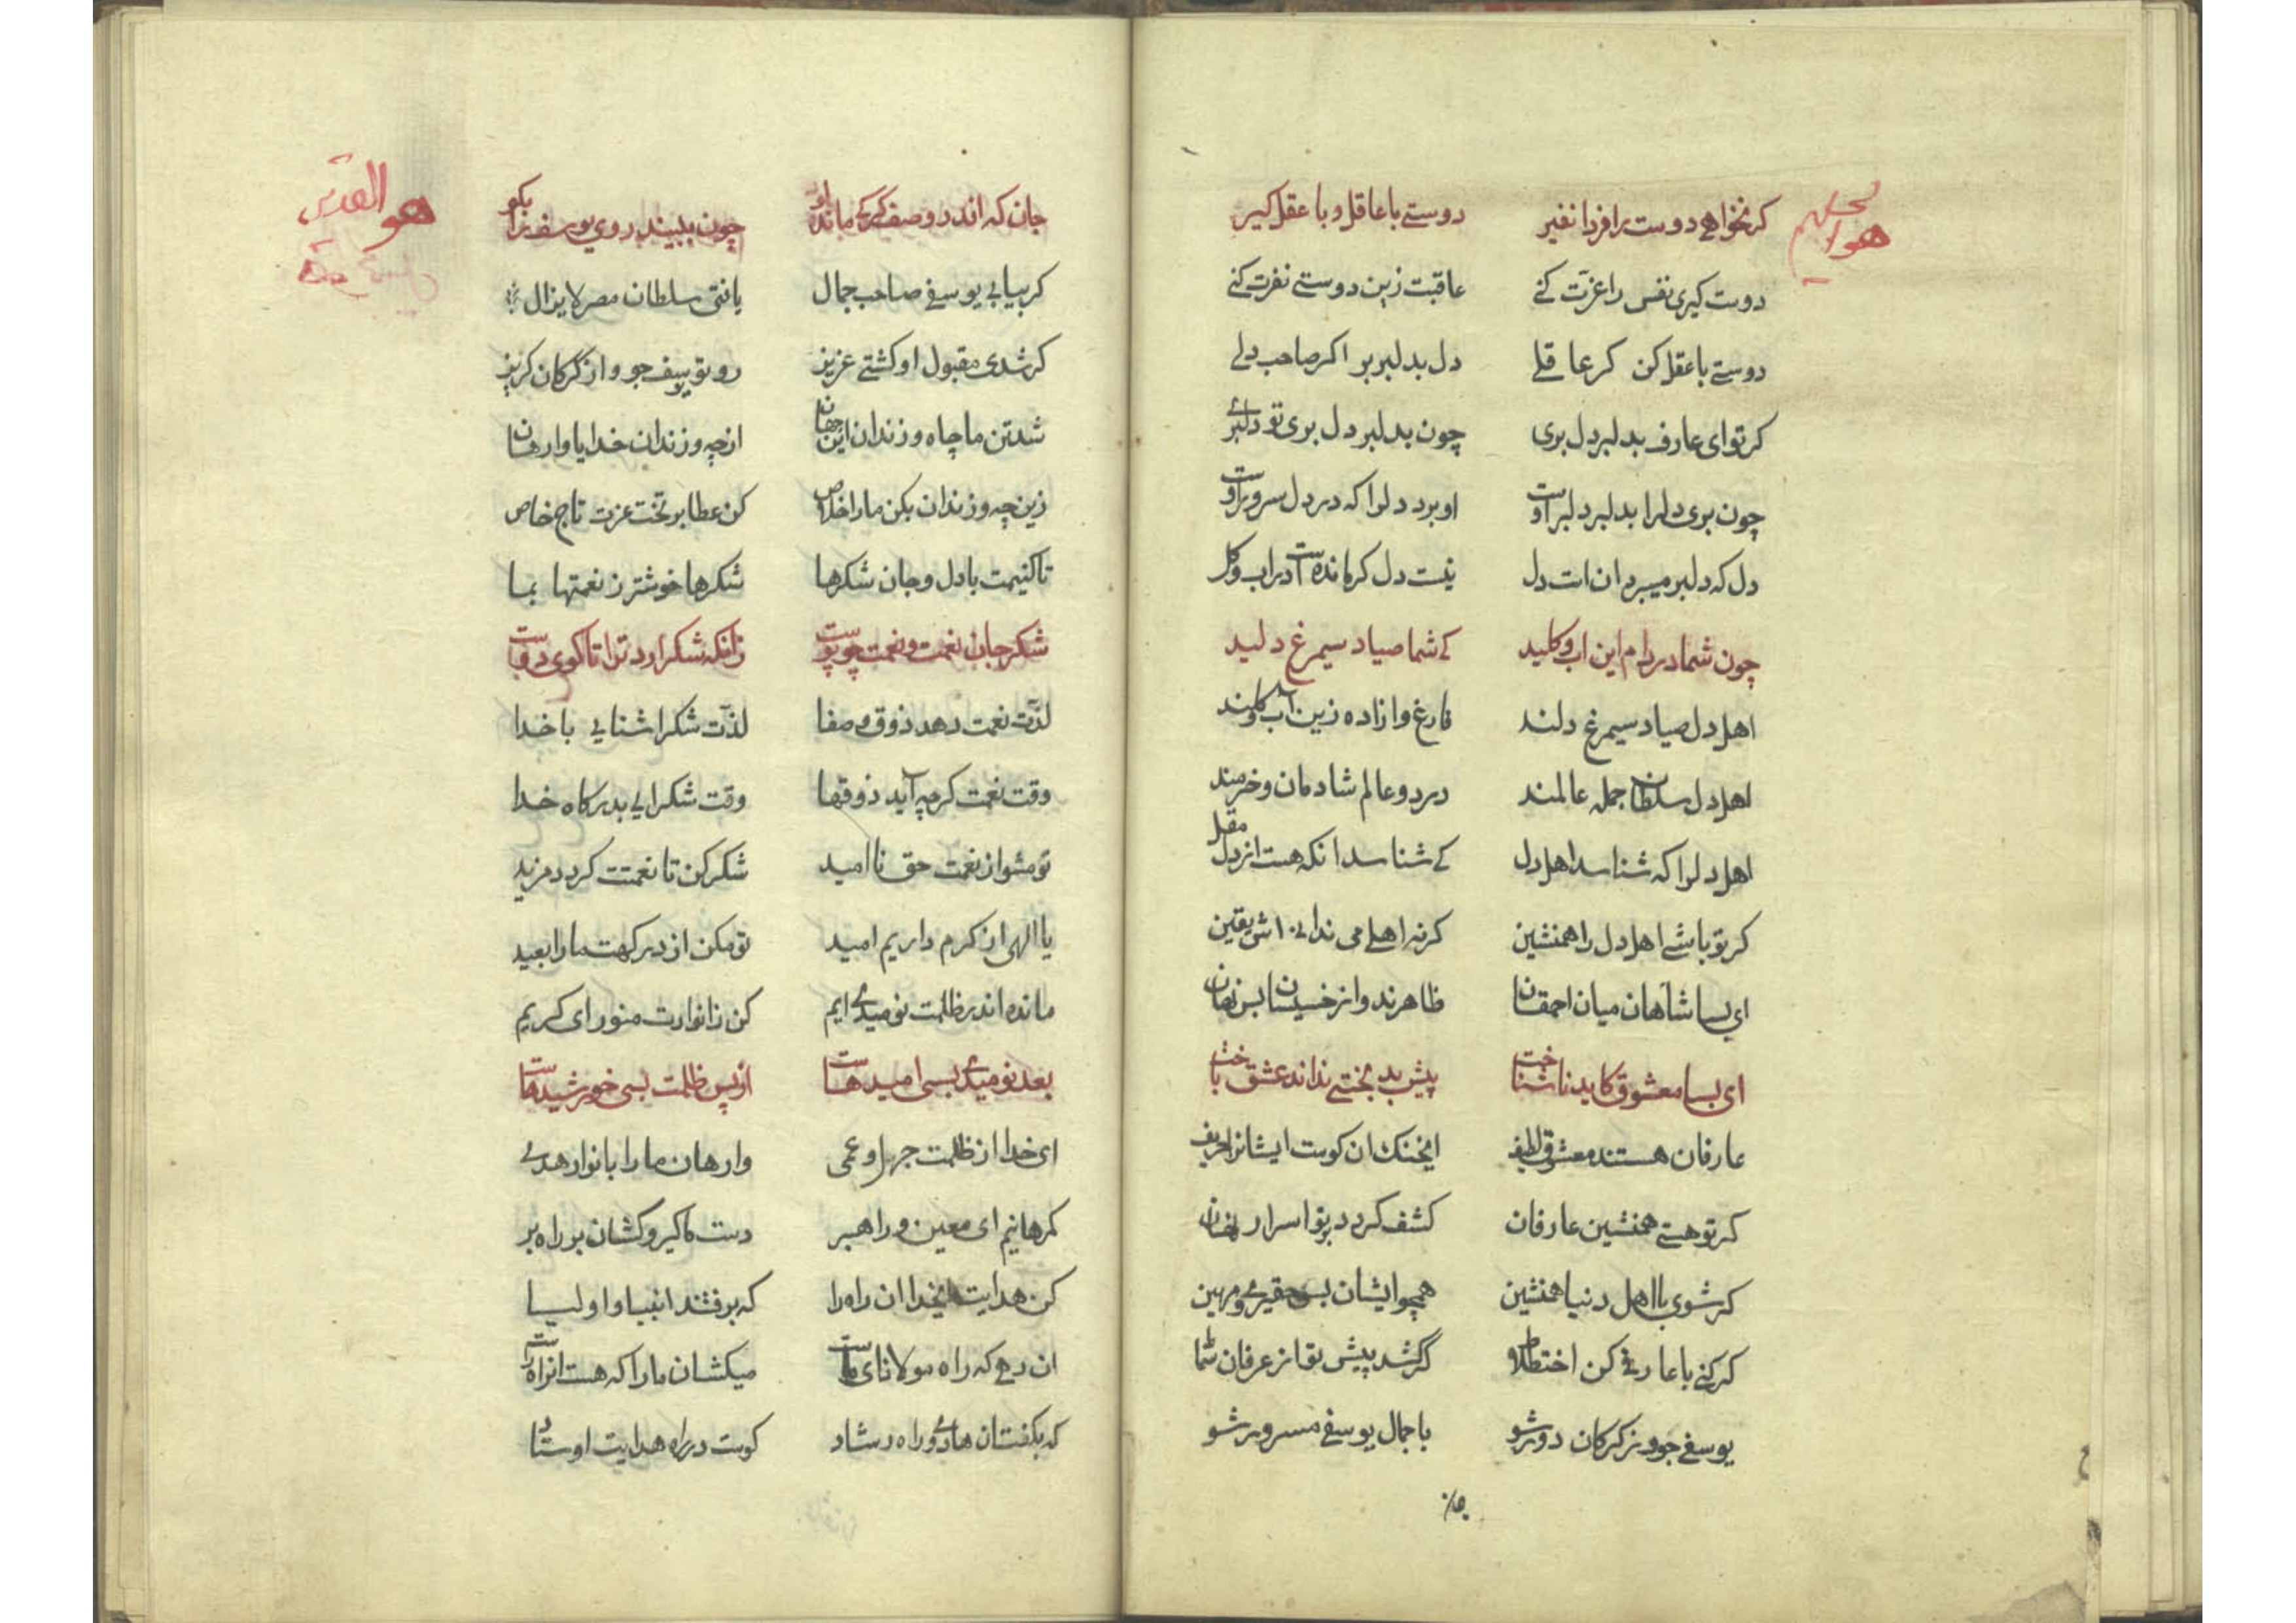 کرنخواهی دوست را فردا نفیر دوستے با عاقل و با عقل کیر
دوست کیری نفس را عزت کنے عاقبت زین دوستے نفرت کنے
دوستے با عقل کن کر عاقلے دل بدلبر بر اکر صاحب دلے
کر تو ای عارف بدلبر دل بری چون بدلبر دل بری تو دلبرے
چون بری دلرا بدلبر دلبر اوست او برد دلرا که در دل سرور اوست
دل که دلبر میبرد ان است دل نیست دل کر مانده است در اب و کل
چون شما در دام این اب و کلید کے شما صیاد سیمرغ دلید
اهل دل صیاد سیمرغ دلند فارغ و ازاده زین اب و کلند
اهل دل سلطان جمله عالمند در دو عالم شادمان و خرمند
اهل دلرا که شناسد اهل دل کے شناسد انکه هست از دل مقل
کر تو باشے اهل دل را همنشین کر نه اهلے می ندانے اش یقین
ای بسا شاهان میان احمقان ظاهرند و از خسیسان بس نهان
ای بسا معشوق کاید ناشناخت پیش بد بختے نداند عشق باخت
عارفان هستند معشوق لطیف ایخنک ان کوست ایشانرا حریف
کر تو هستے همنشین عارفان کشف کردد بر تو اسرار نهان
کر شوی با اهل دنیا همنشین همچو ایشان بس حقیرے و مهین
کر کنے با عارفے کن اختلاط
یوسفے جو وز کرکان دور شو با جمال یوسفے مسرور شو
جان
هو القدس
جان که اندر وصف کرکے مانده او چون ببیند روی یوسف را بکو
کر بیابے یوسفے صاحب جمال یافتی سلطان مصر لایزال
کر شدی مقبول او کشتے عزیز رو تو یوسف جو و از کرکان کریز
شد تن ما چاه و زندان این جهان از چه و زندان خدایا وارهان
زین چه و زندان بکن ما را خلاص کن عطا بر تخت عزت تاج خاص
تا کنیمت با دل و جان شکرها شکرها خوشتر ز نعمتها بما
شکر جان نعمت و نعمت چو پوست زانکه شکر ارد ترا تا کوی دوست
لذت نعمت دهد ذوق و صفا لذت شکر اشنایے با خدا
وقت نعمت کرچه آید ذوقها وقت شکر ایے بدرکاه خدا
تو مشو از نعمت حق ناامید شکر کن تا نعمتت کردد مزید
یا الهی از کرم داریم امید تو مکن از درکهت ما را بعید
مانده اندر ظلمت نومیدے ایم کن ز انوارت منور ای کریم
بعد نومیدے بسی امیدهاست از پس ظلمت بسی خورشیدهاست
ای خدا از ظلمت جهل و عمی وارهان ما را بانوار هدے
کمرهانیم ای معین و راهبر دست ما کیر و کشان بر راه بر
کن هدایت ایخدا ان راه را که برفتند انبیا و اولیا
ان رهے که راه مولانای ماست میکشان ما را که هست ان راه راست
که بکفتان هادے و راه رشاد کوست در راه هدایت اوستاد